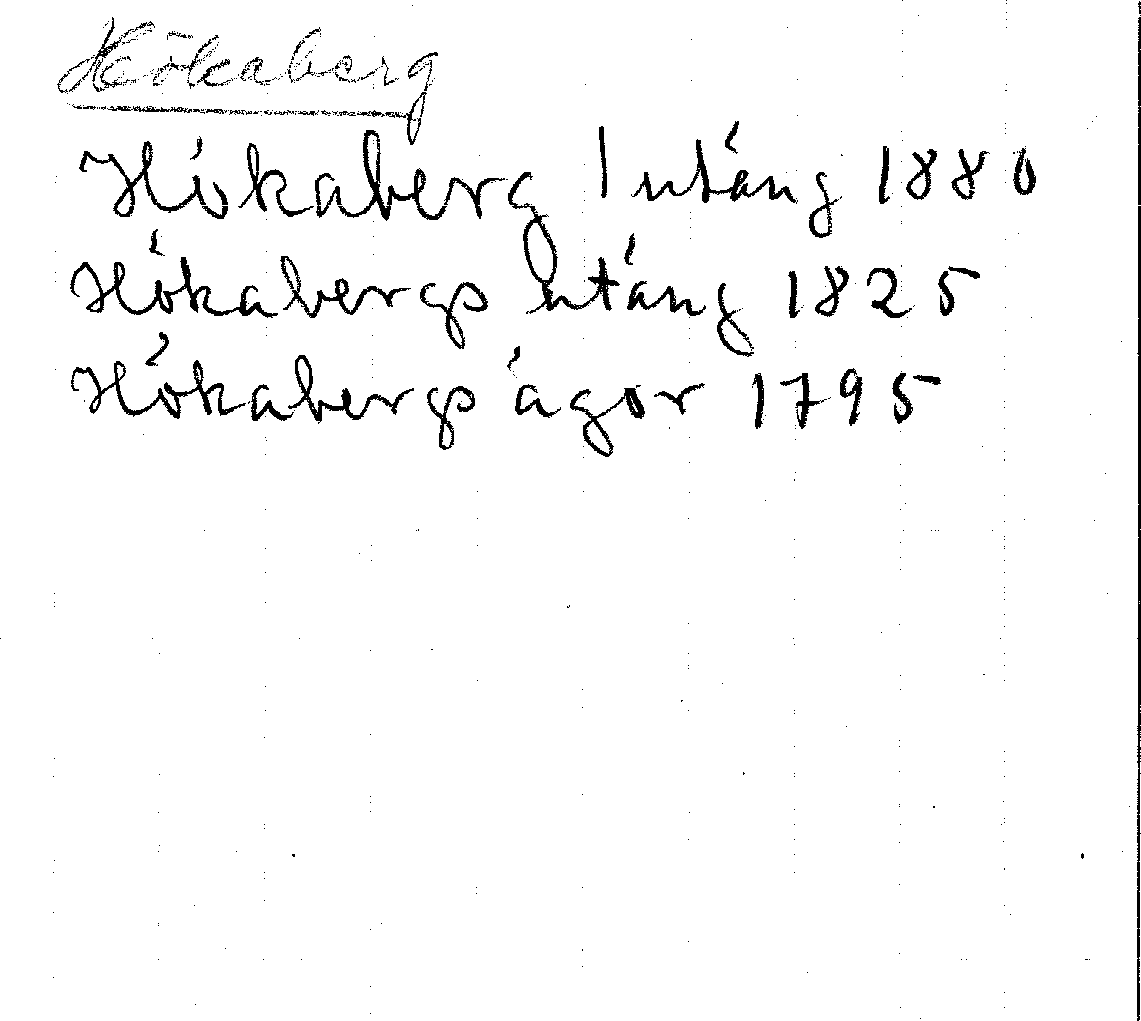 Hökaberg
Hökaberg | utäng 1880
Hökabergs utäng 1825
Hökabergs ägor 1795